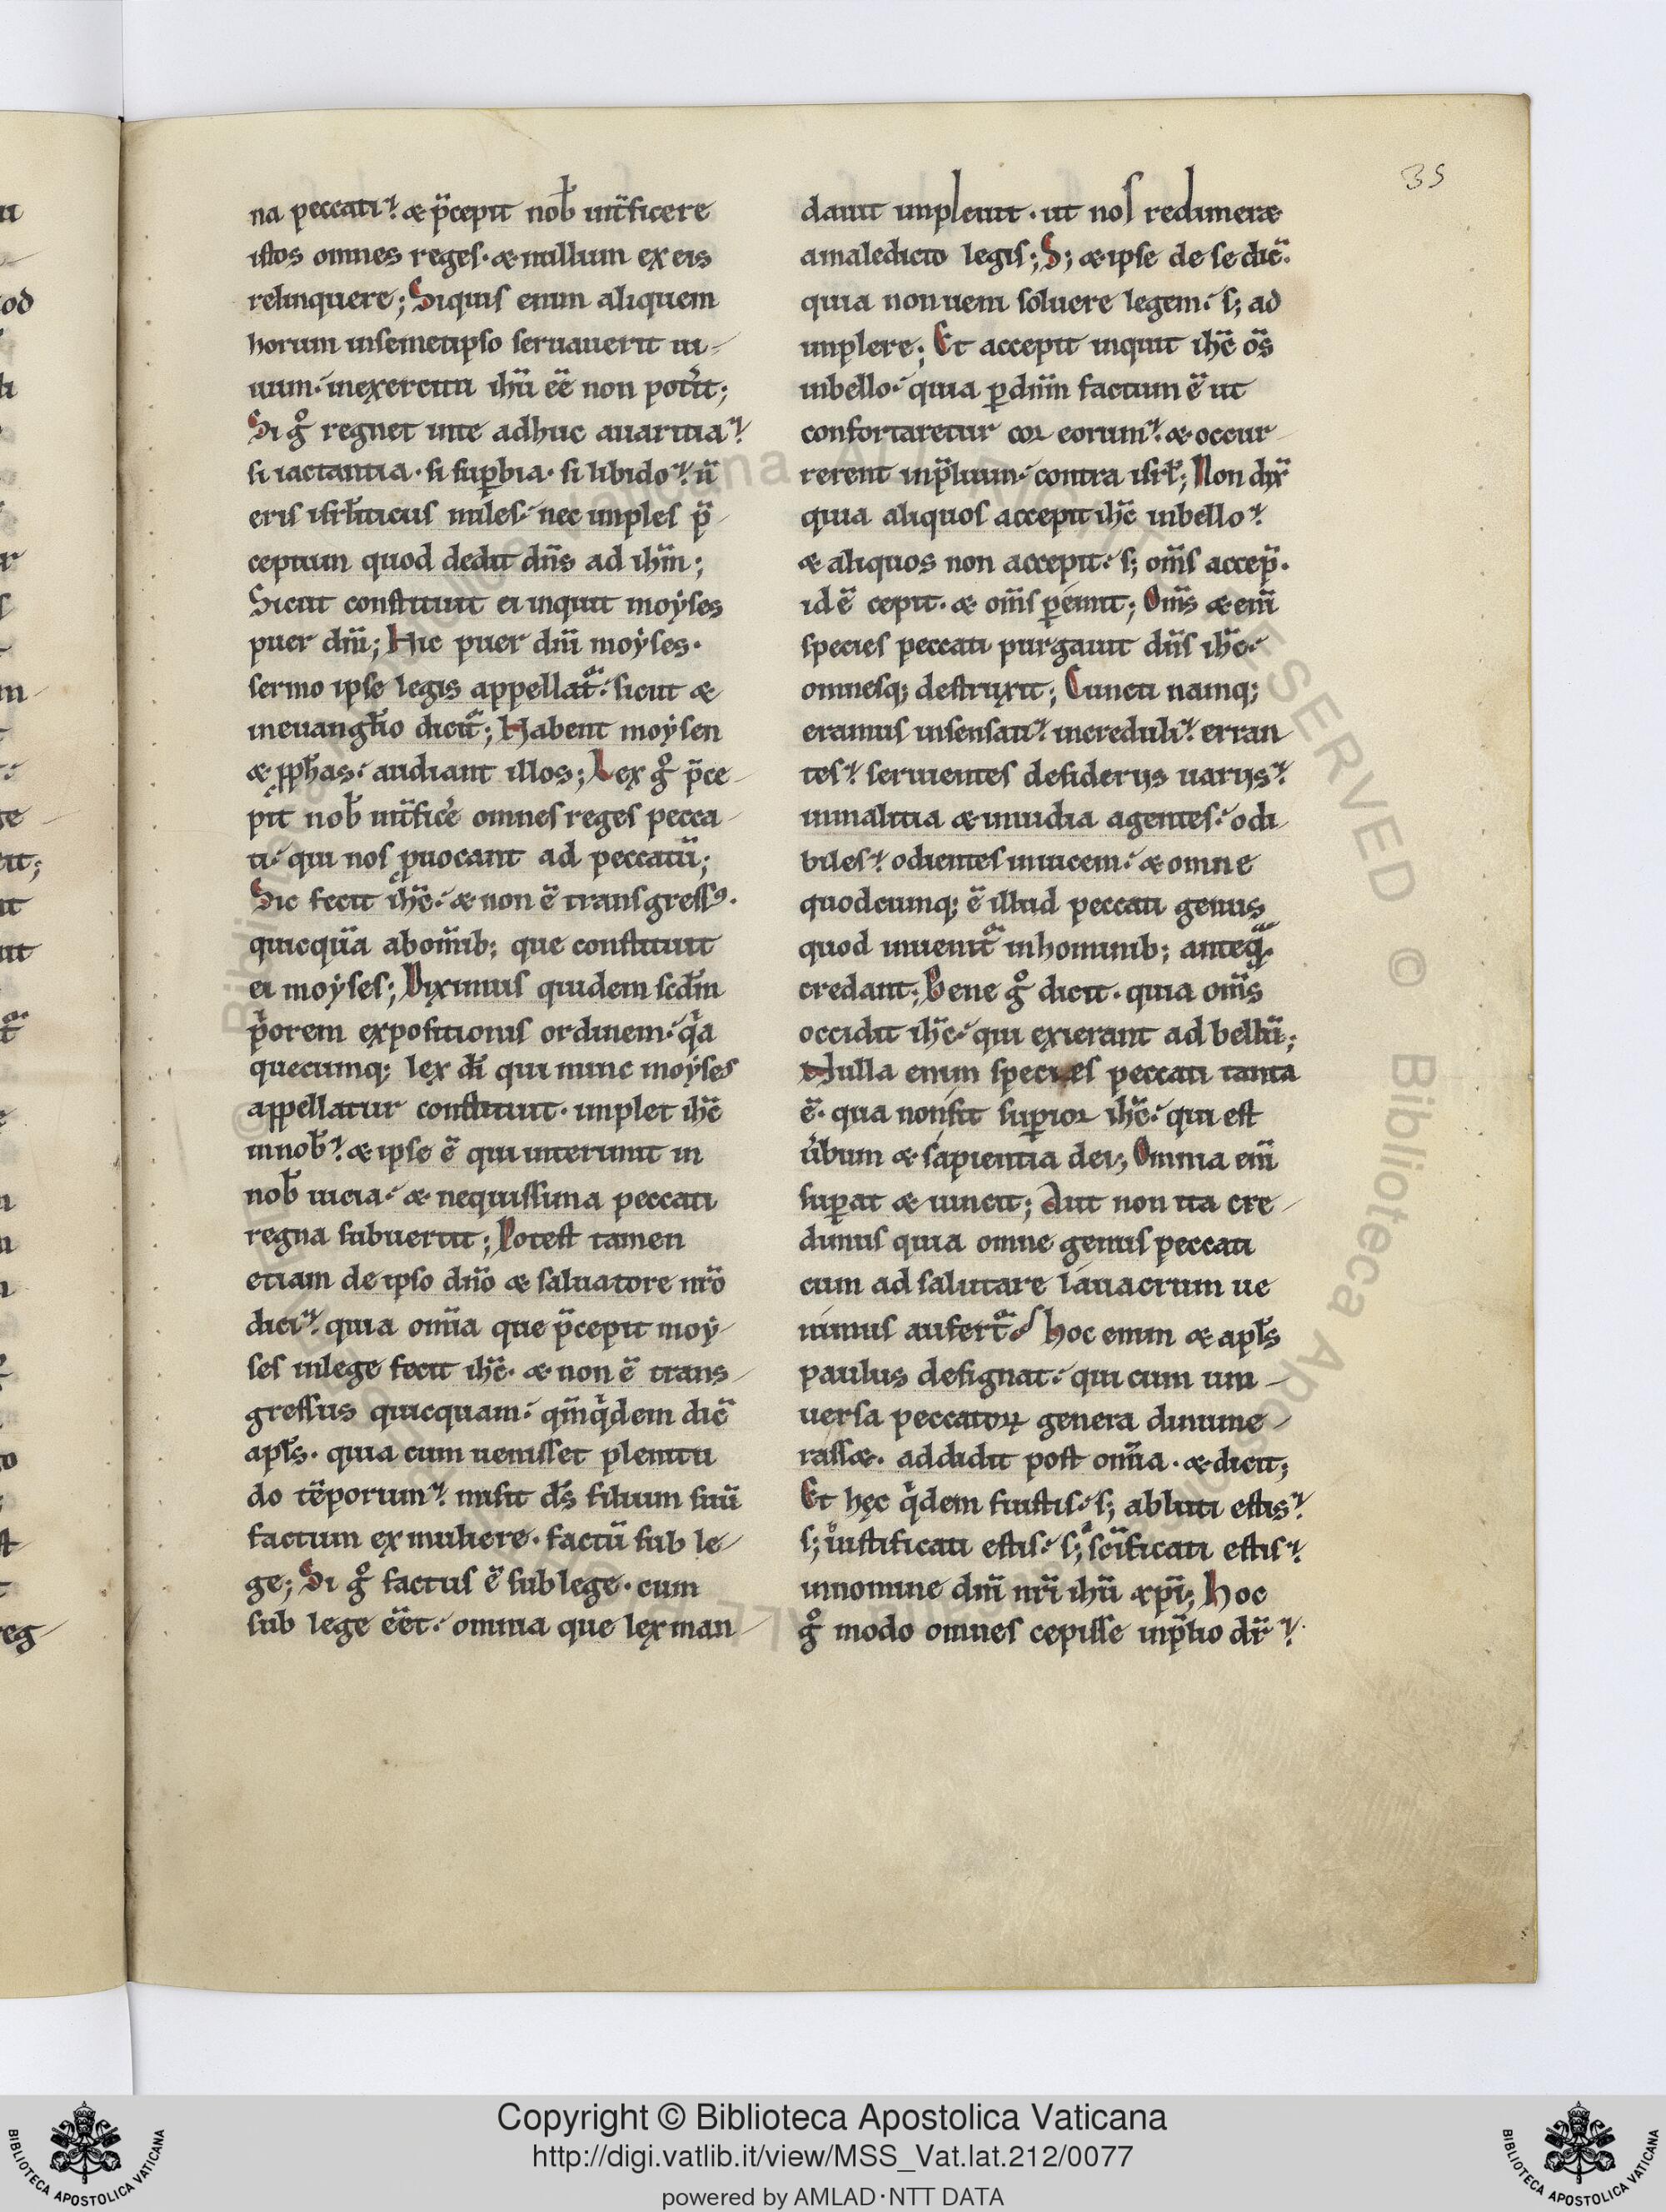 35
na peccati. & p̄cepit nob̄ int̄ficere
istos omnes reges. & nullum ex eis
relinquere; Siquis enim aliquem
horum insemetipso seruauerit ui-
uum. inexercitu ih̄u ēē non pot̄it;
Si g̊ regnet inte adhuc auaritia.
si iactantia. si sup̄bia. si libido. n̄
eris isrl̄iticus miles. nec imples p̄
ceptum quod dedit dn̄s ad ih̄m;
Sicut constituit ei inquit moẏses
puer dn̄i; Hic puer dn̄i moẏses.
sermo ipse legis appellat̄. sicut &
ineuangl̄io dicit̄; Habent moẏsen
& p̱ph̄as. audiant illos; Lex g̊ p̄ce
pit nob̄ int̄fic̄e omnes reges pecca
ti. qui nos p̱uocant ad peccatū;
Sic fecit ih̄c. & non ē transgressꝰ.
quicquā abom̄ib; que constituit
ei moẏses; Diximus quidem scd̄m
p̍orem expositionis ordinem. qͣa
quecumq; lex dī qui nunc moẏses
appellatur constituit. implet ih̄c
innob̄. & ipse ē qui interimit in
nob̄ uicia. & nequissima peccati
regna subuertit; Potest tamen
etiam de ipso dn̄o & saluatore nr̄o
dici. quia om̄ia que p̄cepit moẏ
ses inlege fecit ih̄c. & non ē trans
gressus quicquam. qm̄q̍dem dic̄
apl̄s. quia cum uenisset plenitu
do tēporum. misit d̄s filium suū
factum ex muliere. factū sub le
ge; Si g̊ factus ē sub lege. cum
sub lege ēēt. omnia que lex man
dauit impleuit. ut nos redimer&
amaledicto legis; S; & ipse de se dic̄.
quia non ueni soluere legem. s; ad
implere; Et accepit inquit ih̄c ōs
inbello. quia p̱ dn̄m factum ē ut
confortaretur cor eorum. & occur
rerent inp̄lium. contra isrl̄; Non dix̄
quia aliquos accepit ih̄c inbello.
& aliquos non accepit. s; om̄s accep̄.
id ē cepit. & om̄s p̱emit; Om̄s & enī
species peccati purgauit dn̄s ih̄c.
omnesq; destruxit; Cuncti namq;
eramus insensati. increduli. erran
tes. seruientes desiderijs uarijs.
inmalitia & inuidia agentes. odi
biles. odientes inuicem. & omne
quodcumq; ē illud peccati genus
quod inuenit̄ inhominib; anteqͣ
credant; Bene g̊ dicit. quia om̄s
occidit ih̄c. qui exierant ad bellū;
Nulla enim species peccati tanta
ē. qua non sit sup̱ior ih̄c. qui est
ūbum & sapientia dei; Omnia enī
sup̱at & uincit; Aut non ita cre
dimus quia omne genus peccati
cum ad salutare lauacrum ue
nimus aufert̄. Hoc enim & apl̄s
paulus designat. qui cum uni-
uersa peccatoꝝ genera dinume
rass&. addidit post om̄ia. & dicit;
Et hęc q̍dem fuistis. s; abluti estis.
s; iustificati estis. s; sc̄ificati estis.
innomine dn̄i nr̄i ih̄u xp̄i; Hoc
g̊ modo omnes cepisse inp̄lio dr̄.
Copyright © Biblioteca Apostolica Vaticana
http://digi.vatlib.it/view/MSS_Vat.lat.212/0077
powered by AMLAD·NTT DATA
BIBLIOTECA APOSTOLICA VATICANA
BIBLIOTECA APOSTOLICA VATICANA